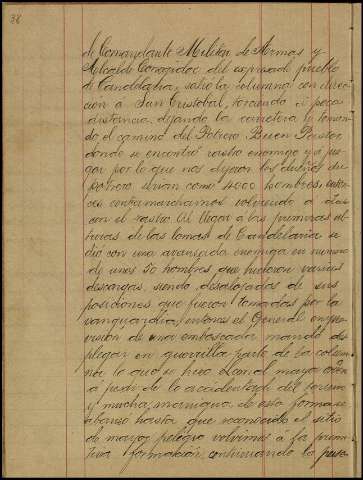 38
de Comandante Militar de Armas y
Alcalde Corregidor del expresado pueblo
de Candelaria, salió la columna con direc
cion a San Cristobal, torciendo á poca
distancia dejando la carretera y toman
do el camino del Potrero Buen Pastor
donde se encontró rastro enemigo y á juz
gar por lo que nos dijeron los dueños del
potrero serian como 4000 hombres, enton
ces contramarchamos volviendo a dar
con el rastro. Al llegar á las primeras al
turas de las lomas de Candelaria se
dió con una avanzada enemiga en numero
de unos 50 hombres que hicieron varias
descargas, siendo desalojados de sus
posiciones que fueron tomadas por la
vanguardia, entonces el General en pre
vision de una emboscada mandó des
plegar en guerrilla parte de la colum
na lo que se hizo con el mayor orden
á pesar de lo accidentado del terreno
y mucha manigua, de esta forma se
abanzo hasta que reconocido el sitio
de mayor peligro volvimos á la primi
tiva formacion, continuando la